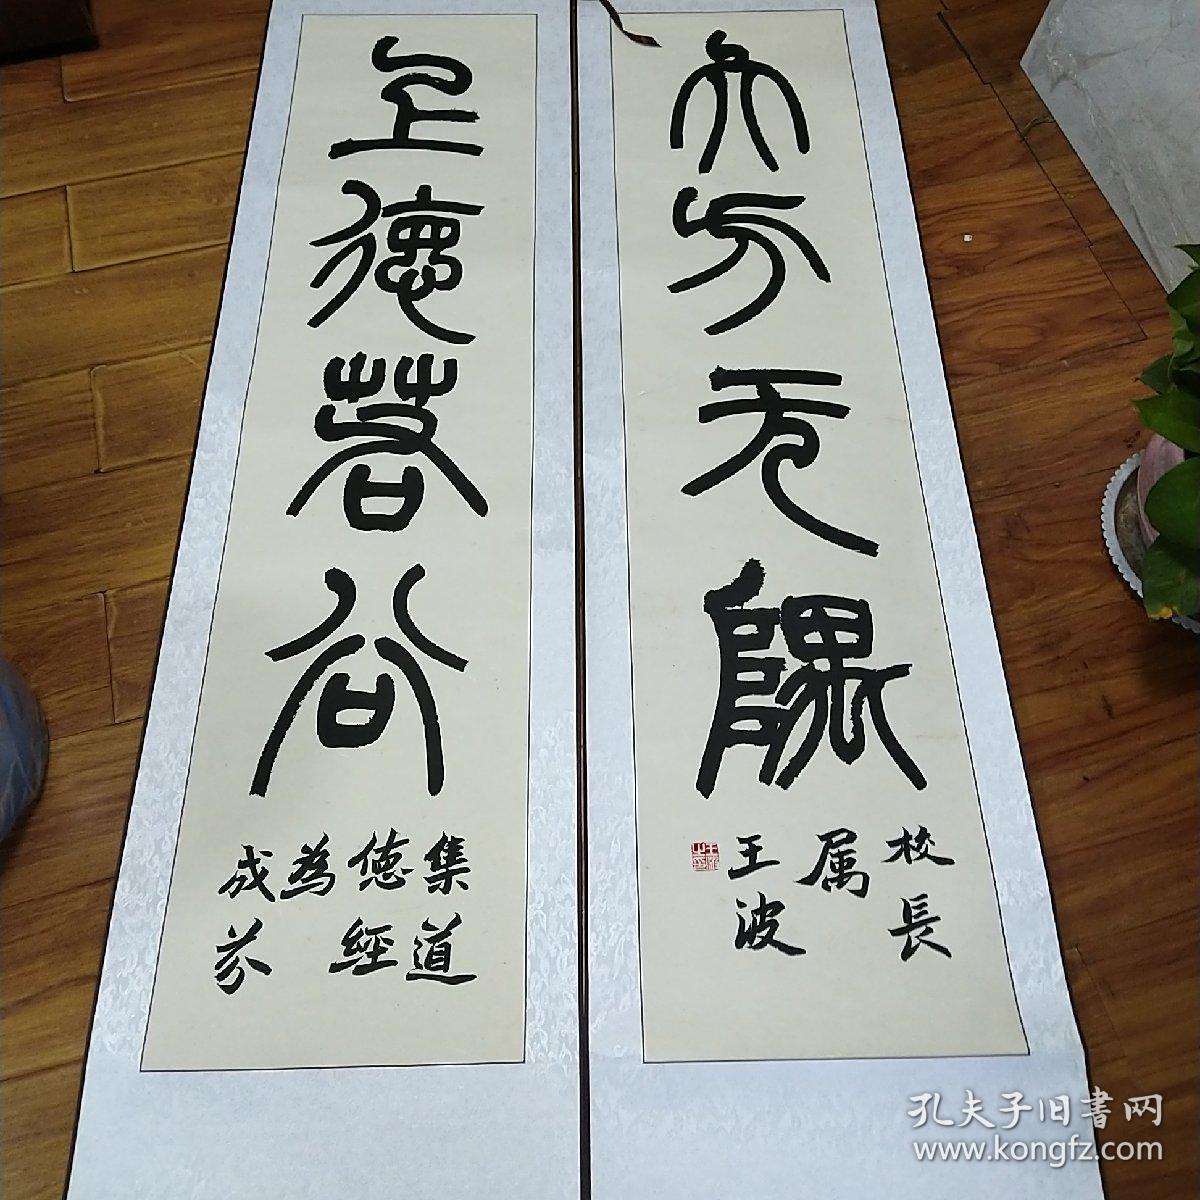 上德若谷
集道
德經
為
成芬
大方无隅
校長
属
王波
孔夫子旧書网
www.kongfz.com